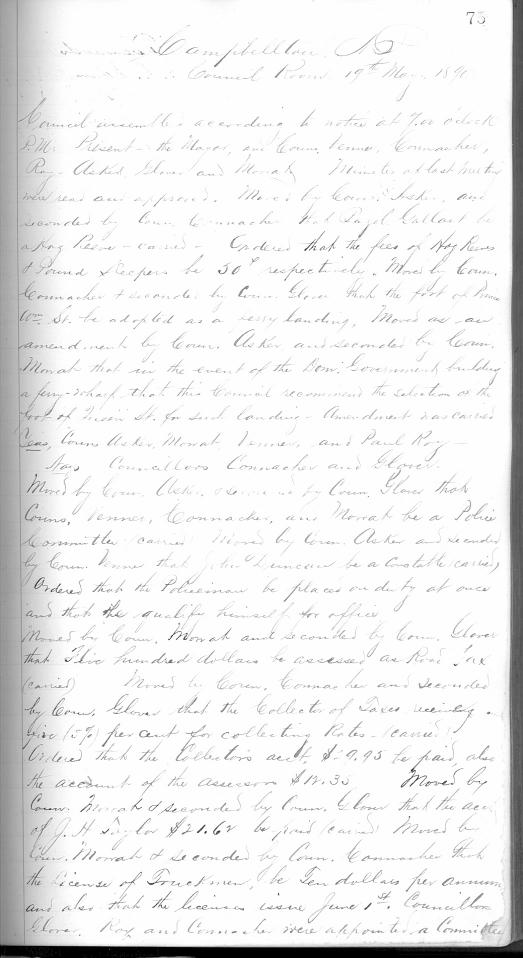 75
Campbellton NB
Council Room 19th May. 1890
Council assembled according to notice at 7.00 o'clock
P.M. Present - the Mayor, and Coun. Venner, Connacher,
Roy - Asker, Glover and Morrah Minutes of last meeting
were read and approved. Moved by Coun. Asker, and
seconded by Coun. Connacher that Gallant be
a Hog Reeve - carried - Ordered that the fees of Hog Reeves
& Pound Keepers be 50c respectively. Moved by Coun.
Connacher & seconded by Coun. Glover that the foot of Prince
Wm. St. be adopted as a ferry landing, Moved as an
amendment by Coun. Asker and seconded by Coun.
Morrah that in the event of the Dom. Government building
a ferry-wharf that this Council recommend the selection of the
foot of Main St. for such landing - Amendment was carried
Yeas, Couns Asker, Morrah, Venner, and Paul Roy -
Nays Councillors Connacher and Glover.
Moved by Coun. Asker & seconded by Coun. Glover that
Couns, Venner, Connacher, and Morrah be a Police
Committee (carried) Moved by Coun. Asker and seconded
by Coun. Venner that John Duncan be a Constable (carried)
Ordered that the Policeman be placed on duty at once
and that he qualify himself for office
Moved by Coun. Morrah and seconded by Coun. Glover
that Five hundred dollars be assessed as Road Tax
(carried) Moved by Coun. Connacher and seconded
by Coun. Glover that the Collector of Taxes receive
five (5%) per cent for collecting Rates - (carried)
Ordered that the Collectors acct. be paid, also
the account of the assessors $12.35 Moved by
Coun. Morrah & seconded by Coun. Glover that the acct
of J. H Taylor $21.62 be paid (carried) Moved by
Coun. Morrah & seconded by Coun. Connacher that
the License of Truckmen, be Ten dollars per annum
and also that the licenses issue June 1st. Councillors
Glover, Roy and Connacher were appointed a Committee